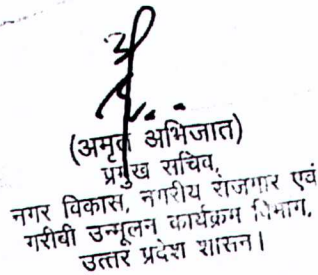 (अमृत अभिजात)
प्रमुख सचिव,
नगर विकास, नगरीय रोजगार एवं
गरीबी उन्मूलन कार्यक्रम विभाग,
उत्तर प्रदेश शासन।